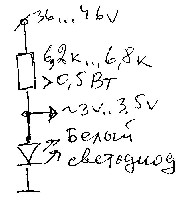 36...46v
6,2к...6,8к
>0,5Вт
~3v...3,5v
Белый
светодиод